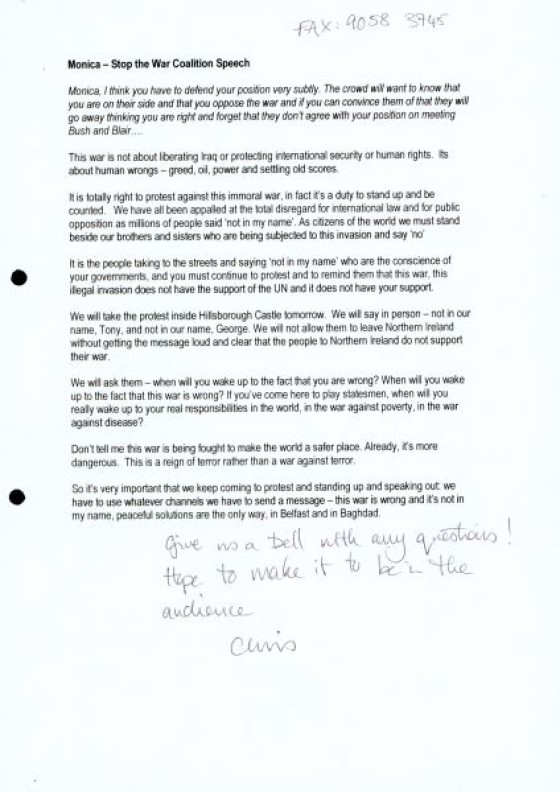 FAX: 9058 3745
Monica – Stop the War Coalition Speech
Monica, I think you have to defend your position very subtly. The crowd will want to know that
you are on their side and that you oppose the war and if you can convince them of that they will
go away thinking you are right and forget that they don't agree with your position on meeting
Bush and Blair....
This war is not about liberating Iraq or protecting international security or human rights. Its
about human wrongs – greed, oil, power and settling old scores.
It is totally right to protest against this immoral war, in fact it's a duty to stand up and be
counted. We have all been appalled at the total disregard for international law and for public
opposition as millions of people said 'not in my name'. As citizens of the world we must stand
beside our brothers and sisters who are being subjected to this invasion and say 'no'
It is the people taking to the streets and saying 'not in my name' who are the conscience of
your governments, and you must continue to protest and to remind them that this war, this
illegal invasion does not have the support of the UN and it does not have your support.
We will take the protest inside Hillsborough Castle tomorrow. We will say in person – not in our
name, Tony, and not in our name, George. We will not allow them to leave Northern Ireland
without getting the message loud and clear that the people to Northern Ireland do not support
their war.
We will ask them – when will you wake up to the fact that you are wrong? When will you wake
up to the fact that this war is wrong? If you've come here to play statesmen, when will you
really wake up to your real responsibilities in the world, in the war against poverty, in the war
against disease?
Don't tell me this war is being fought to make the world a safer place. Already, it's more
dangerous. This is a reign of terror rather than a war against terror.
So it's very important that we keep coming to protest and standing up and speaking out: we
have to use whatever channels we have to send a message – this war is wrong and it's not in
my name, peaceful solutions are the only way, in Belfast and in Baghdad.
Give us a bell with any questions!
Hope to make it to be in the
audience
Chris